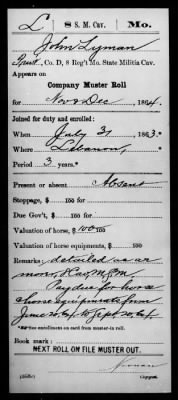 L 8 S. M. Cav. Mo.
John Lyman
Privt., Co. D, 8 Reg't Mo. State Militia Cav.
Appears on
Company Muster Roll
for Nov & Dec, 1864.
Joined for duty and enrolled:
When July 31, 1863.*
Where Lebanon,*
Period 3 years.*
Present or absent Absent
Stoppage, $ 100 for
Due Gov't, $ 100 for
Valuation of horse, $ 100/100
Valuation of horse equipments, $ 100
Remarks: detailed as ar
moror, Hav, M, Mo.
Pay due for horse
& horse equipments from
June 30, 64 to Sept 30, 64
*See enrollment on card from muster-in roll.
Book mark:
NEXT ROLL ON FILE MUSTER OUT.
(858)
Copyist.